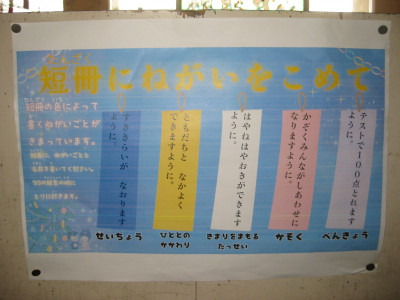 たんざく
短冊にねがいをこめて
短冊の色によって
書くねがいごとが
きまっています。
テストで100点とれます
ように。
べんきょう
かぞくみんながしあわせに
なりますように。
かぞく
はやねはやおきができます
ように。
きまりをまもる
たっせい
ともだちと なかよく
できますように。
ひととの
かかわり
すききらいが なおります
ように。
せいちょう